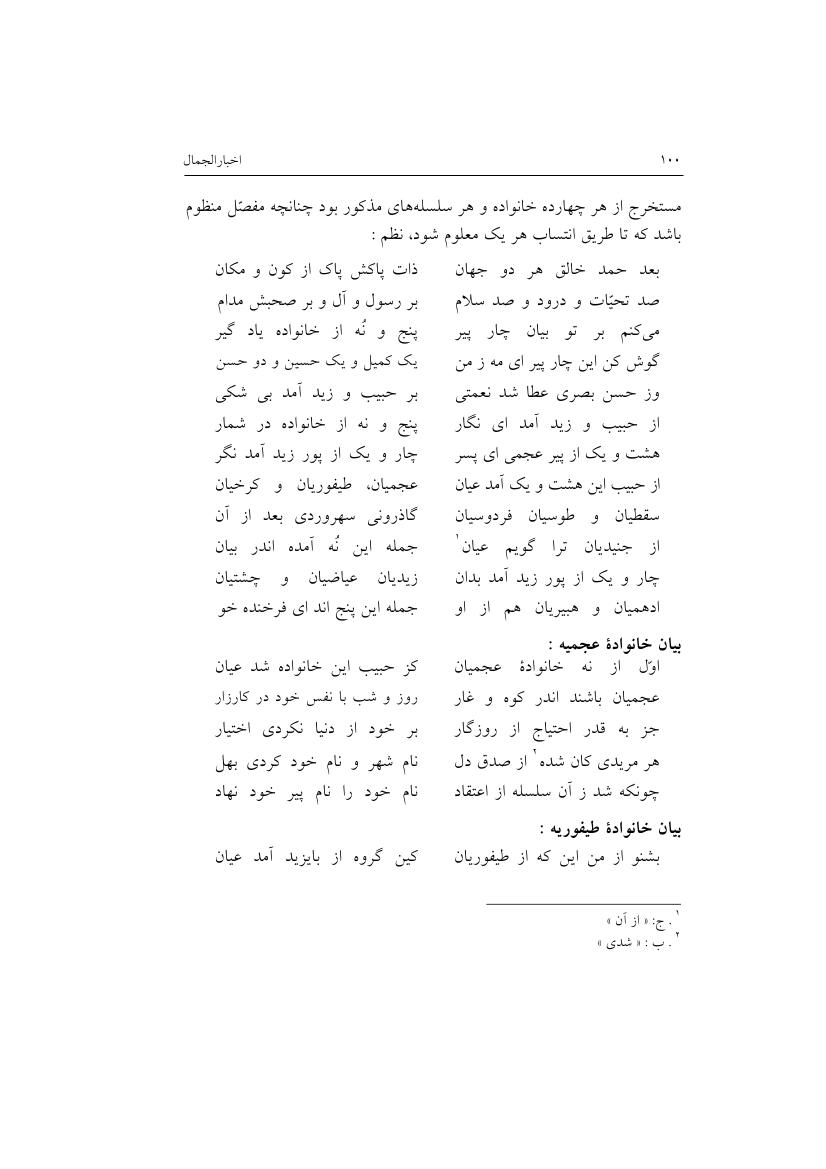 ۱۰۰ اخبارالجمال
مستخرج از هر چهارده خانواده و هر سلسله‌های مذکور بود چنانچه مفصّل منظوم
باشد که تا طریق انتساب هر یک معلوم شود، نظم :
بعد حمد خالق هر دو جهان ذات پاکش پاک از کون و مکان
صد تحیّات و درود و صد سلام بر رسول و آل و بر صحبش مدام
می‌کنم بر تو بیان چار پیر پنج و نُه از خانواده یاد گیر
گوش کن این چار پیر ای مه ز من یک کمیل و یک حسین و دو حسن
وز حسن بصری عطا شد نعمتی بر حبیب و زید آمد بی شکی
از حبیب و زید آمد ای نگار پنج و نه از خانواده در شمار
هشت و یک از پیر عجمی ای پسر چار و یک از پور زید آمد نگر
از حبیب این هشت و یک آمد عیان عجمیان، طیفوریان و کرخیان
سقطیان و طوسیان فردوسیان گاذرونی سهروردی بعد از آن
از جنیدیان ترا گویم عیان۱ جمله این نُه آمده اندر بیان
چار و یک از پور زید آمد بدان زیدیان عیاضیان و چشتیان
ادهمیان و هبیریان هم از او جمله این پنج اند ای فرخنده خو
بیان خانوادهٔ عجمیه :
اوّل از نه خانوادهٔ عجمیان کز حبیب این خانواده شد عیان
عجمیان باشند اندر کوه و غار روز و شب با نفس خود در کارزار
جز به قدر احتیاج از روزگار بر خود از دنیا نکردی اختیار
هر مریدی کان شده۲ از صدق دل نام شهر و نام خود کردی بهل
چونکه شد ز آن سلسله از اعتقاد نام خود را نام پیر خود نهاد
بیان خانوادهٔ طیفوریه :
بشنو از من این که از طیفوریان کین گروه از بایزید آمد عیان
۱. ج: « از آن »
۲. ب : « شدی »